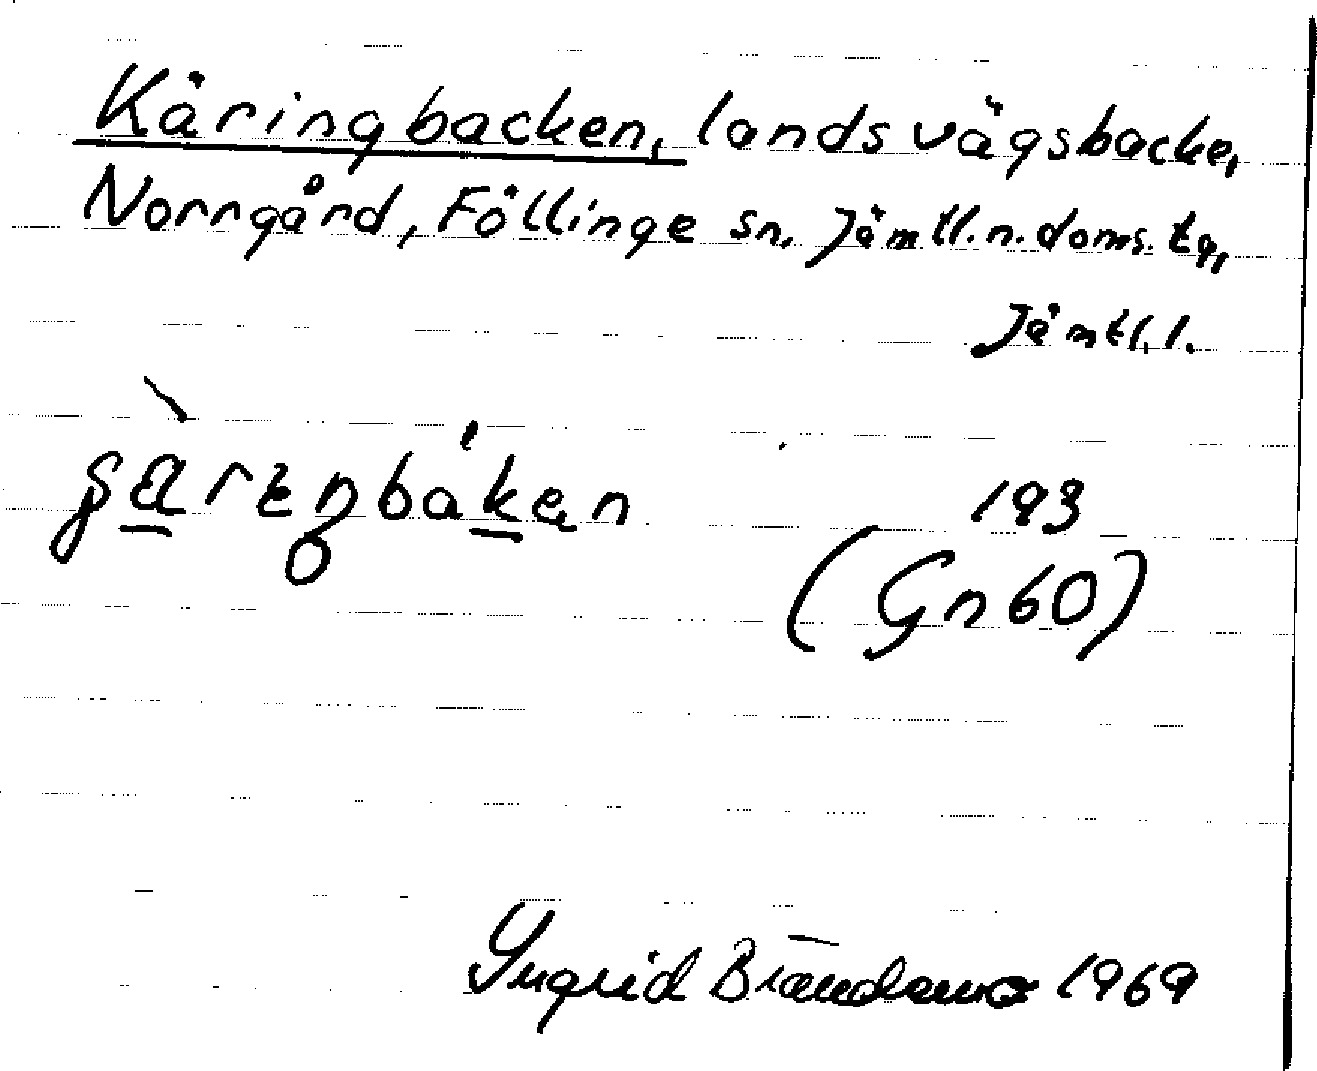 Käringbacken, landsvägsbacke,
Norrgård, Föllinge sn, Jämtl.n.doms.tg,
Jämtl.l.
193
(Gn60)
Ingrid 1969